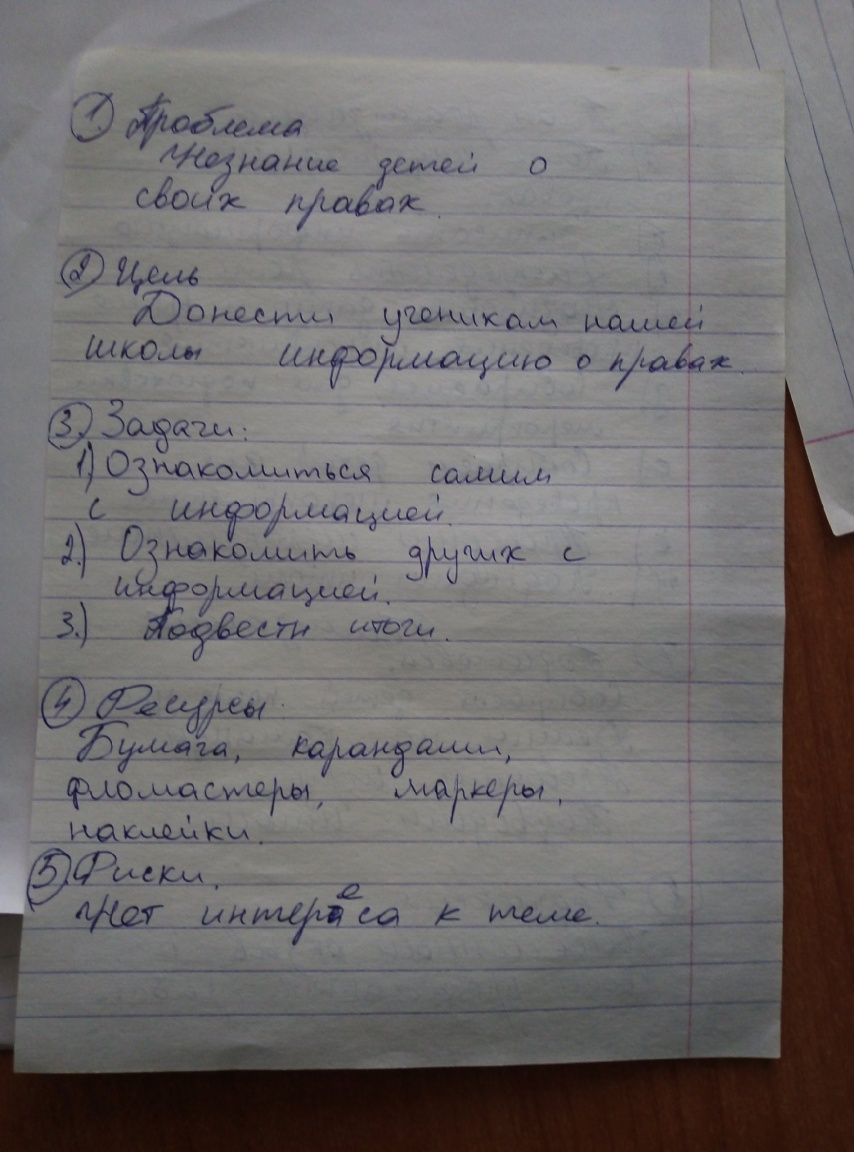 1. Проблема
Незнание детей о
своих правах.
2 Цель
Донести ученикам нашей
школы информацию о правах.
3. Задачи:
1) Ознакомиться самим
с информацией.
2.) Ознакомить других с
информацией.
3.) Подвести итоги.
4 Ресурсы.
Бумага, карандаши,
фломастеры, маркеры,
наклейки.
5 Риски.
Нет интереса к теме.